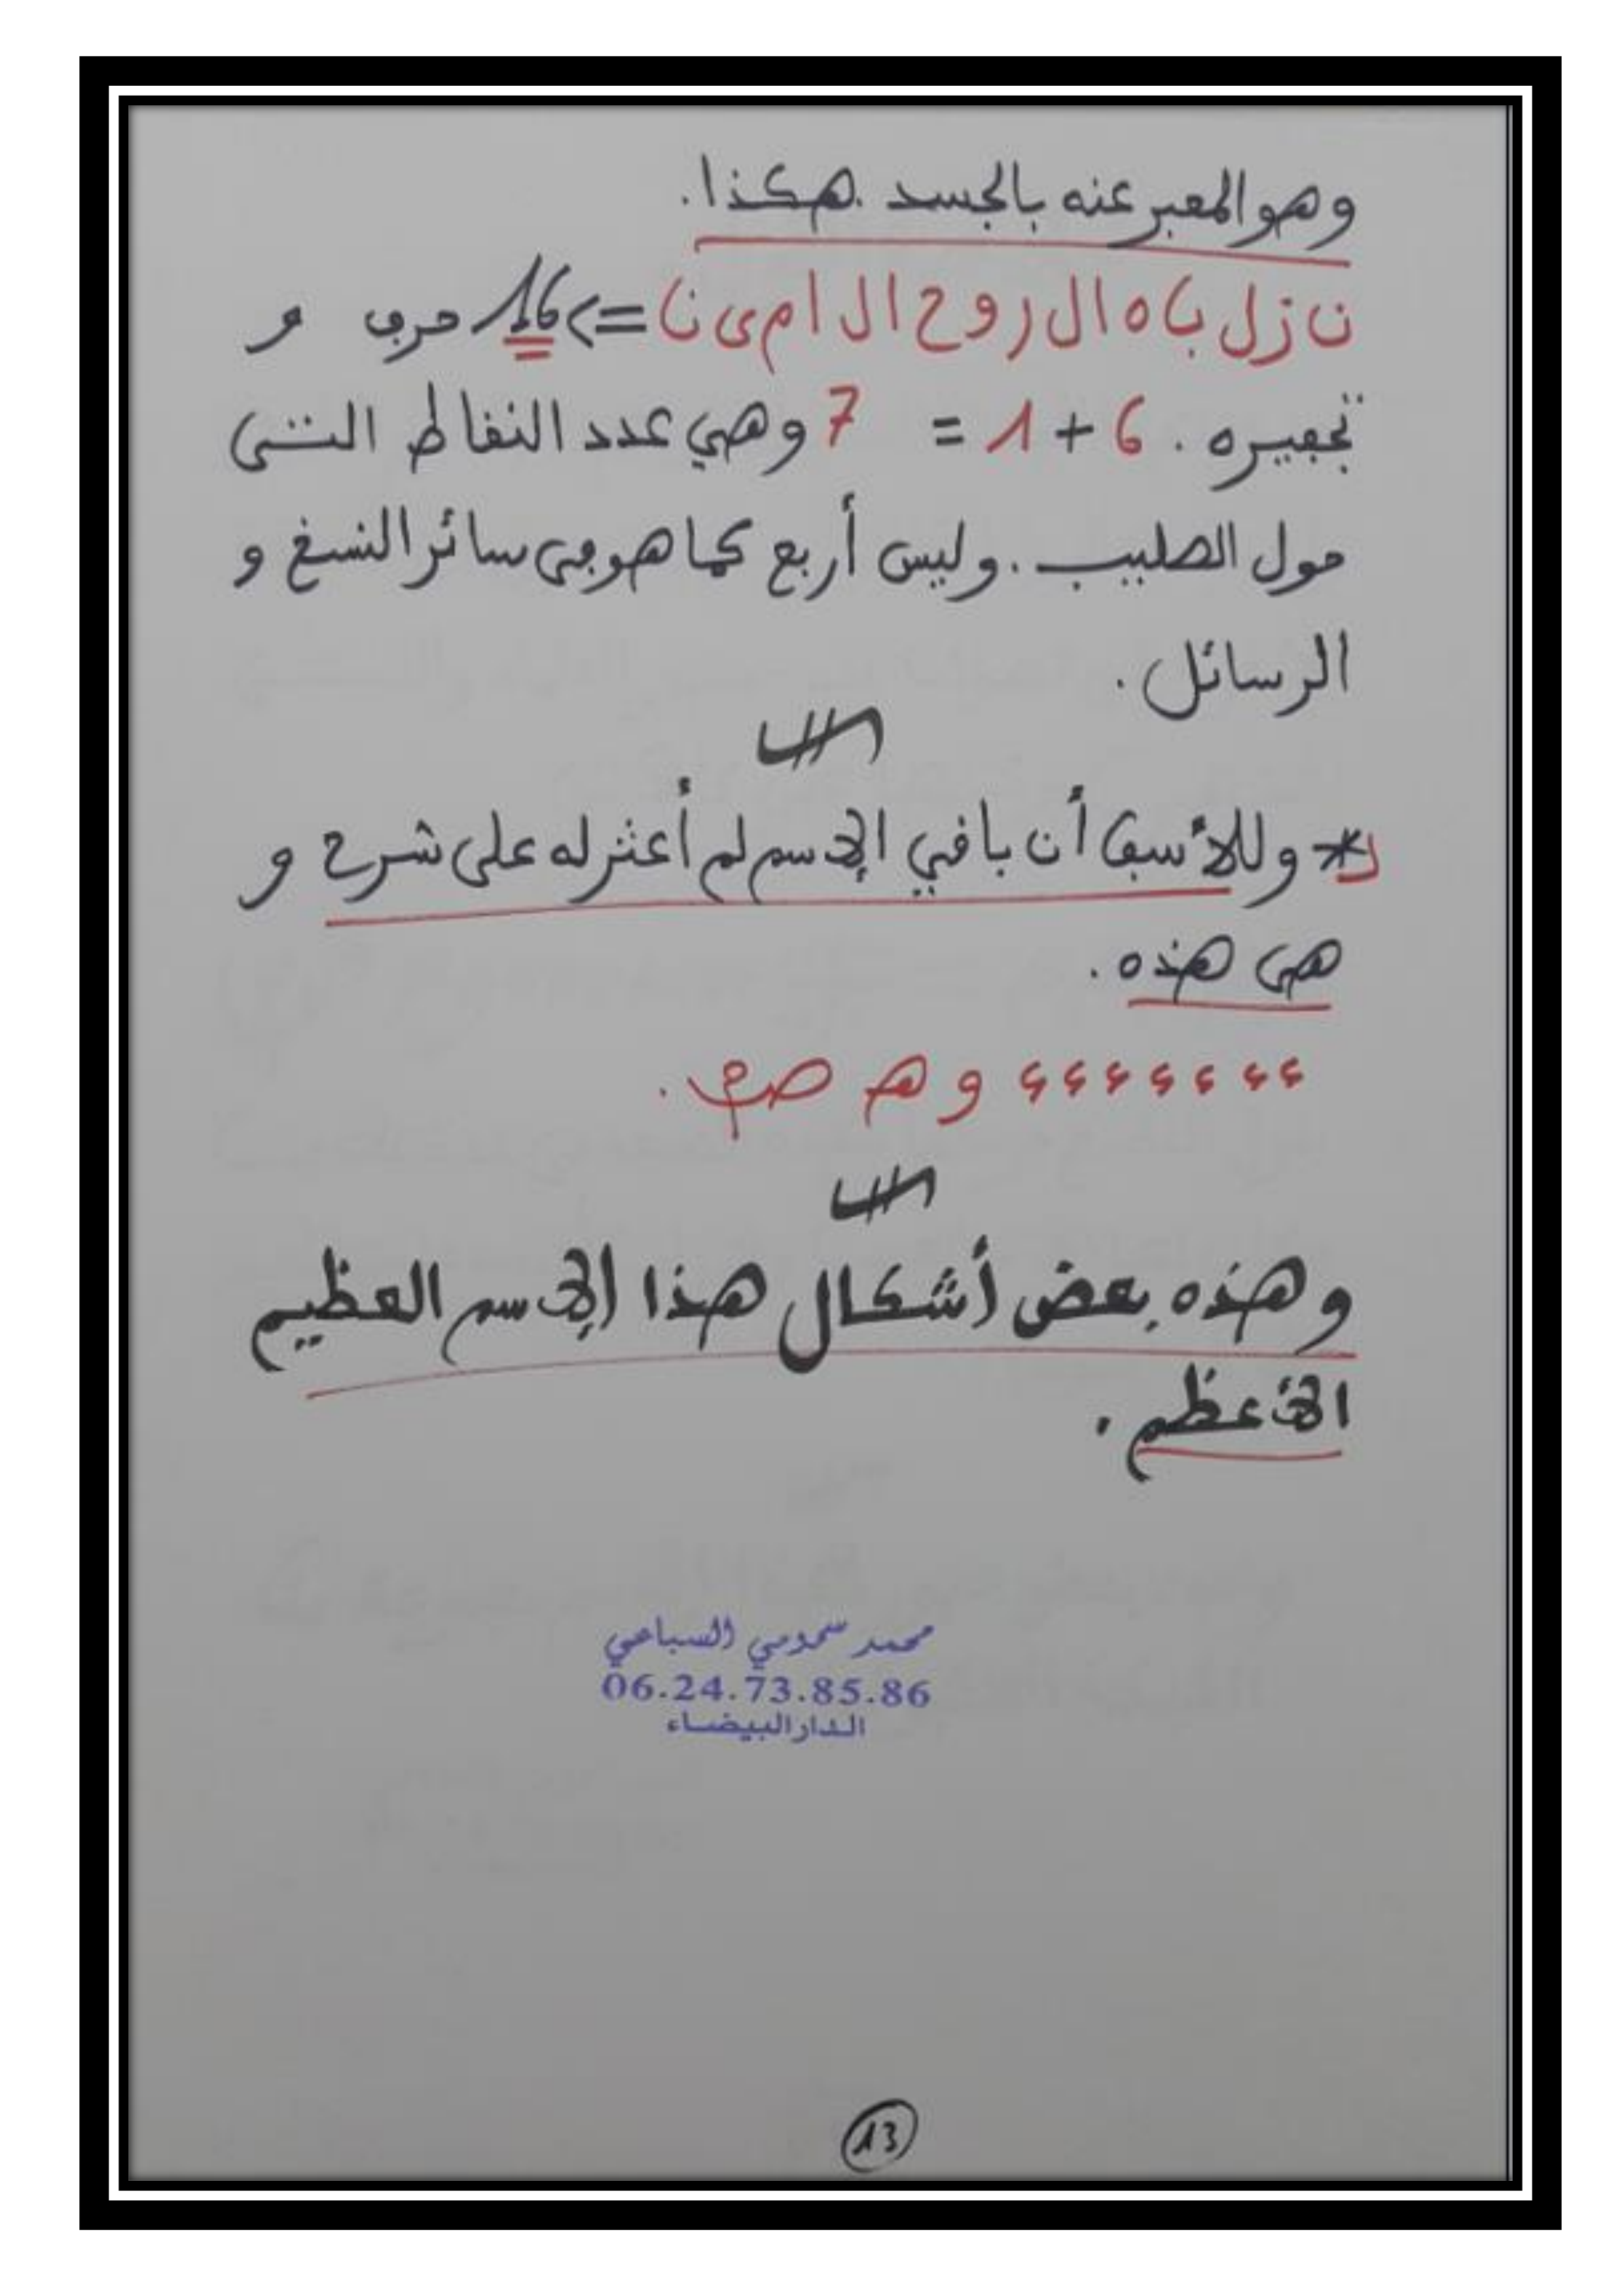 وهو المعبر عنه بالجسد. هكذا.
ن ز ل ب ا ه ا ل ر و ح ا ل ا م ى ن => 16 حرف و
تجفيره. 6 + 1 = 7 وهي عدد النقاط التي
حول الصليب. وليس أربع كما هو في سائر النسخ و
الرسائل.
* وللأسف أن باقي الإسم لم أعثر له على شرح و
هي هذه.
ء ء ء ء ء ء ء و هـ
وهذه بعض أشكال هذا الإسم العظيم
الأعظم.
محمد سمومي السباعي
06.24.73.85.86
الدار البيضاء
13